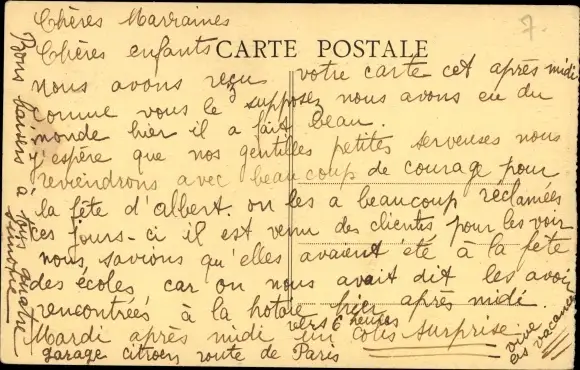 7.
Chères Marraines
Chères enfants
CARTE POSTALE
nous avons reçu votre carte cet après midi
comme vous le supposez nous avons eu du
monde hier il a fait beau.
j'espère que nos gentilles petites serveuses nous
reviendrons avec beaucoup de courage pour
la fête d'albert. on les a beaucoup réclamées
ces jours-ci il est venu des clientes pour les voir
nous savions qu'elles avaient été à la fête
des écoles car on nous avait dit les avoir
rencontrées à la hotoie hier après midi.
Mardi après midi vers 6 heures un colis surprise
garage citroen route de Paris
vive les vacances
Bons baisers à tous quatre
Simone